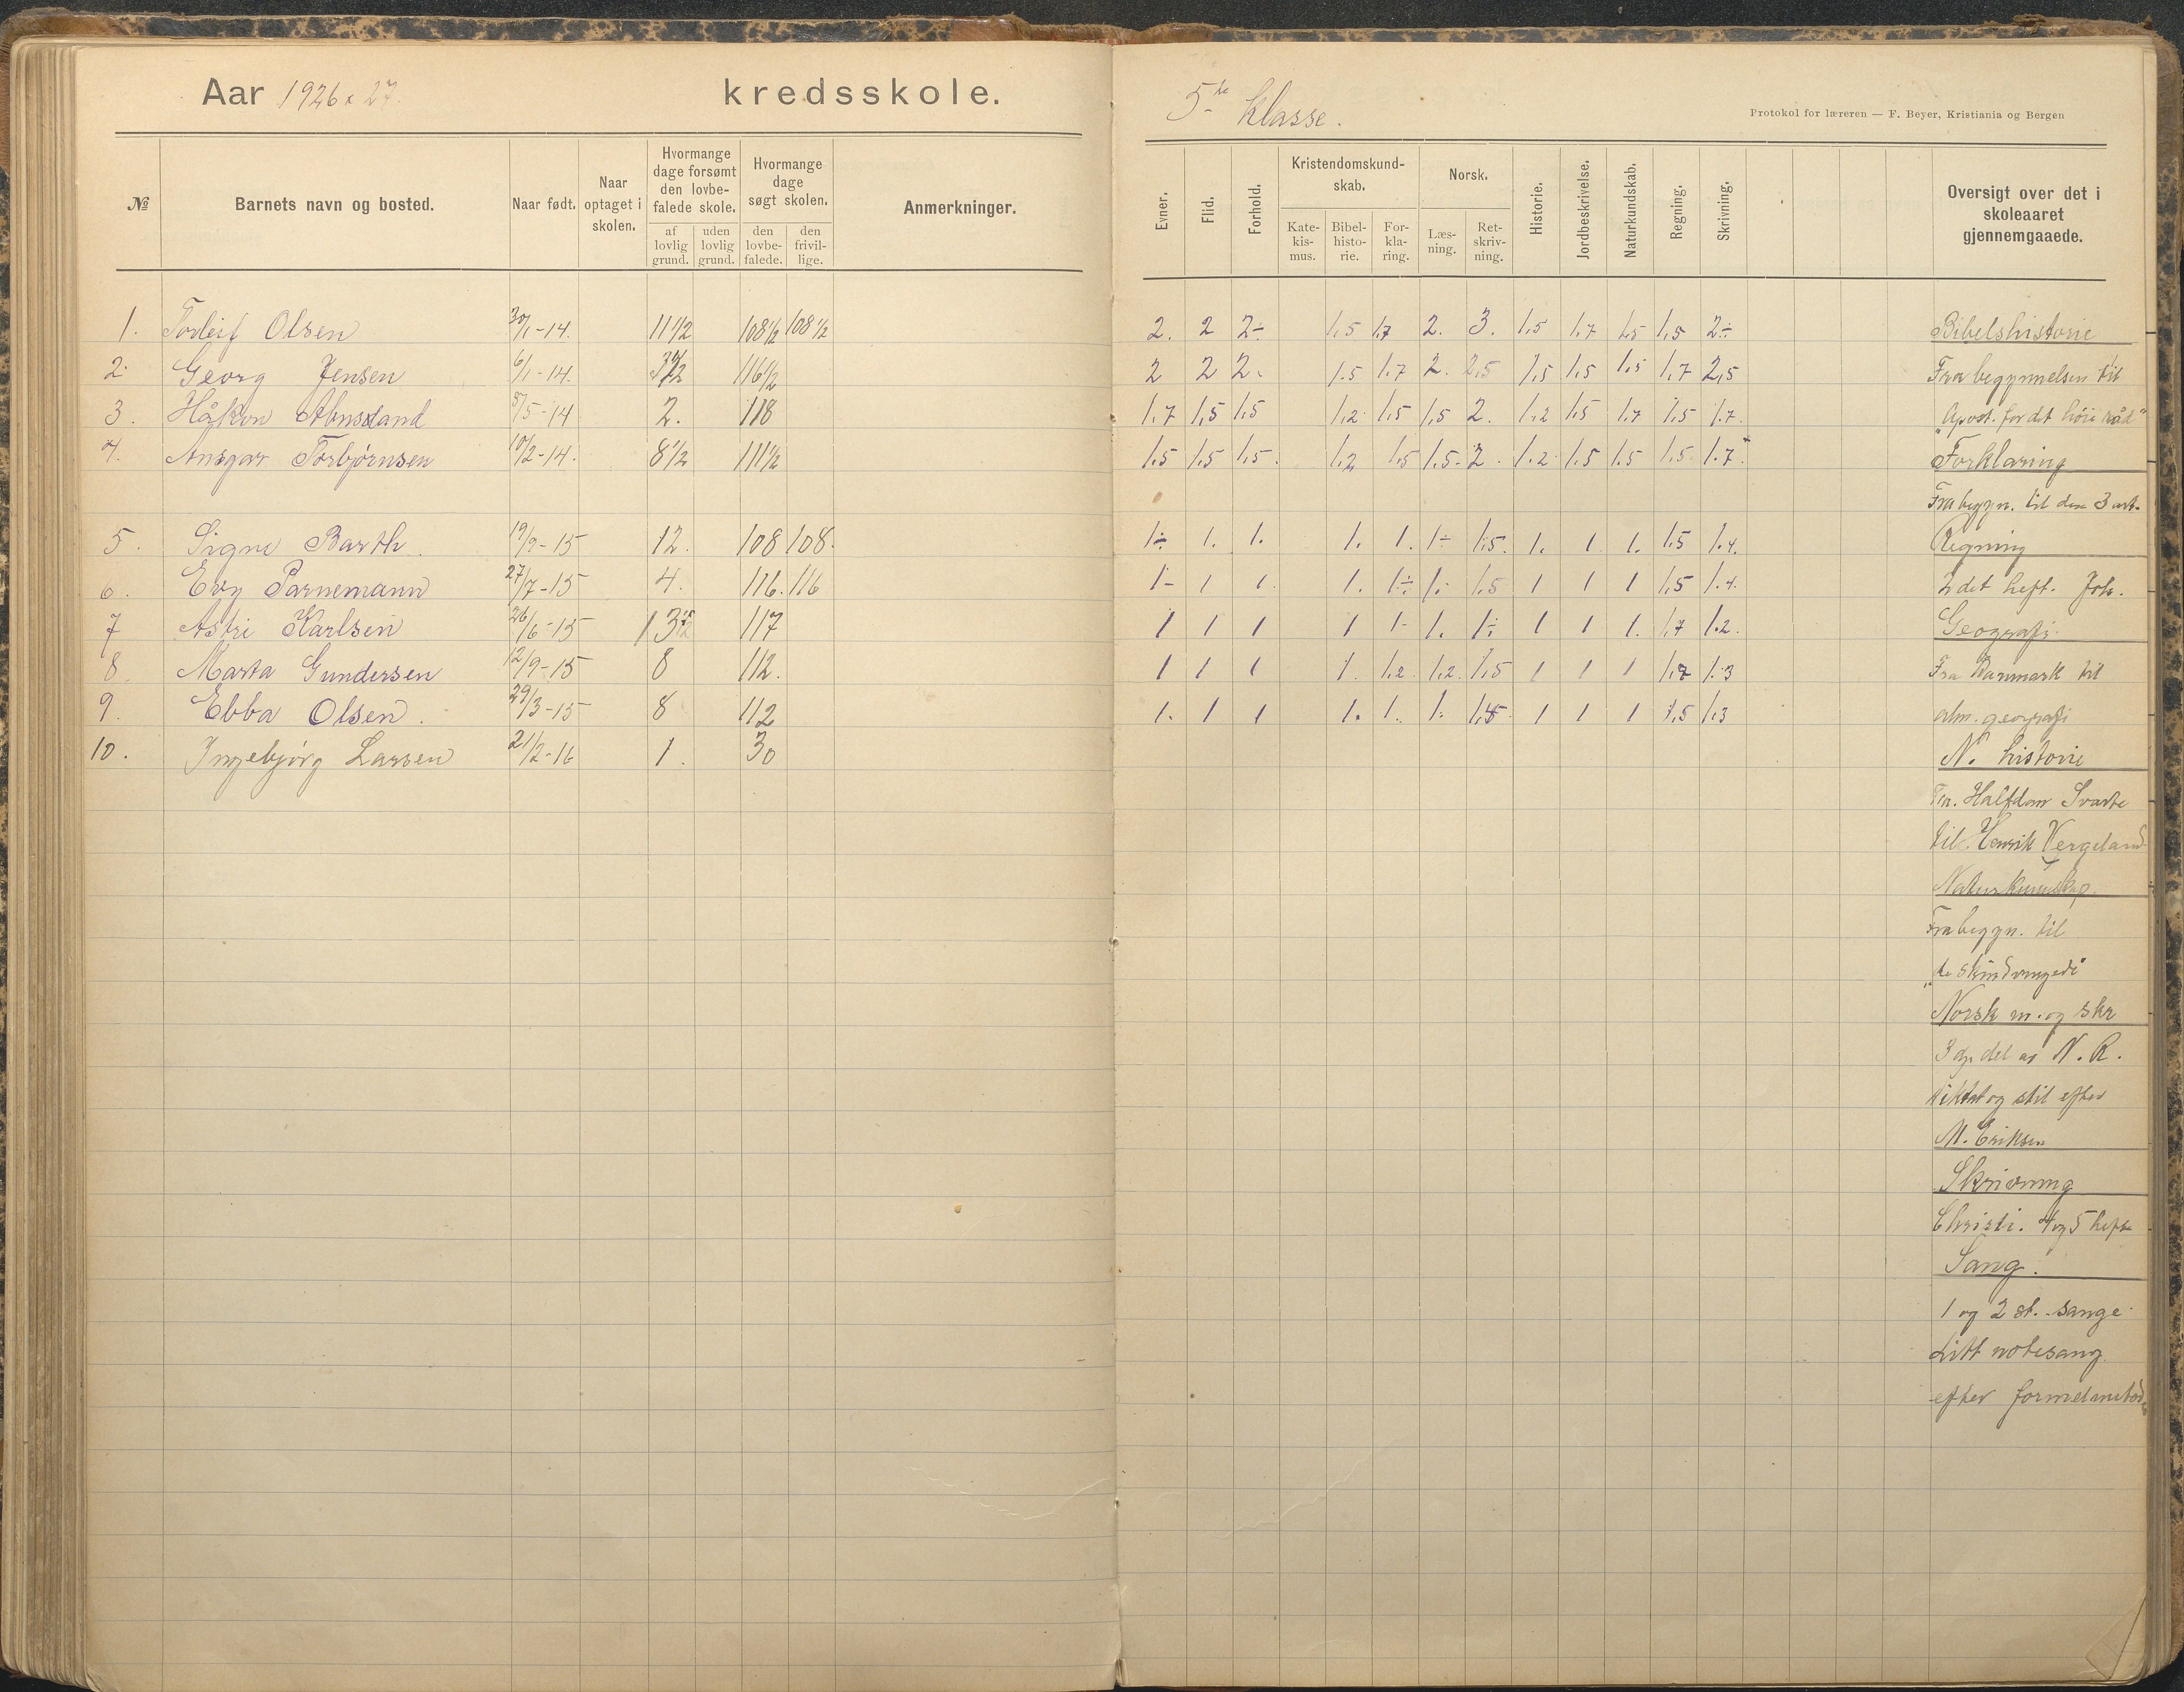 Aar 1926 & 27. kredsskole.
№ Barnets navn og bosted. Naar født. Naar optaget i skolen. Hvormange dage forsømt den lovbefalede skole. af lovlig grund. uden lovlig grund. Hvormange dage søgt skolen. den lovbefalede. den frivillige. Anmerkninger.
1. Torleif Olsen 30/1-14. 11 1/2 108 1/2 108 1/2
2. Georg Jensen 6/1-14. 116 1/2
3. Håkon 8/5-14 2. 118
4. Ansgar Torbjørnsen 10/2-14. 8 1/2 111 1/2
5. Signe Barth. 19/9-15 12. 108 108.
6. Evy Parnemann 27/7-15 4. 116. 116
7 Astri Karlsen 26/6-15 117
8. Marta Gundersen 12/9-15 8 112.
9. Ebba Olsen. 29/3-15 8 112
10. Ingebjørg Larsen 21/2-16 1. 30
5te klasse.
Protokol for læreren — F. Beyer, Kristiania og Bergen
Evner. Flid. Forhold. Kristendomskundskab. Katekismus. Bibelhistorie. Forklaring. Norsk. Læsning. Retskrivning. Historie. Jordbeskrivelse. Naturkundskab. Regning. Skrivning. Oversigt over det i skoleaaret gjennemgaaede.
2. 2 2÷ 1,5 1,7 2. 3. 1,5 1,7 1,5 1,5 2÷
2 2 2. 1.5 1.7 2. 2,5 1,5 1,5 1,5 1,7 2,5
1.7 1,5 1,5 1,2 1,5 1,5 2. 1.2 1,5 1.7 1,5 1.7.
1.5 1.5 1.5. 1.2 1.5 1.5- 2. 1.2. 1.5 1.5 1.5. 1.7.
1÷ 1. 1. 1. 1. 1÷ 1.5. 1. 1 1. 1.5 1.4.
1- 1 1. 1. 1÷ 1- 1.5 1 1 1 1,5 1.4.
1 1 1 1 1- 1. 1÷ 1 1 1. 1.7 1.2.
1 1 1 1. 1.2. 1.2. 1.5 1 1 1 1.7 1.3
1. 1 1 1. 1. 1. 1 1 1 1.5 1.3
Bibelshistorie
Fra begynnelsen til
"Apost. for det høie råd"
Forklaring
Fra begyn. til den 3 art.
Regning
2 det heft. Joh.
Geografi.
Fra Danmark til
alm. geografi
N. historie
Fra. Halfdan Svarte
til Henrik Vergeland
Naturkunnskap.
Fra begyn. til
"de skindvingede"
Norsk m. og skr
3 dje del av N. R.
diktat og stil efter
M. Eriksen
Skrivning
Christi. 4 og 5 hefte
Sang.
1 og 2 st. sange.
Litt notesang.
efter formelmetod